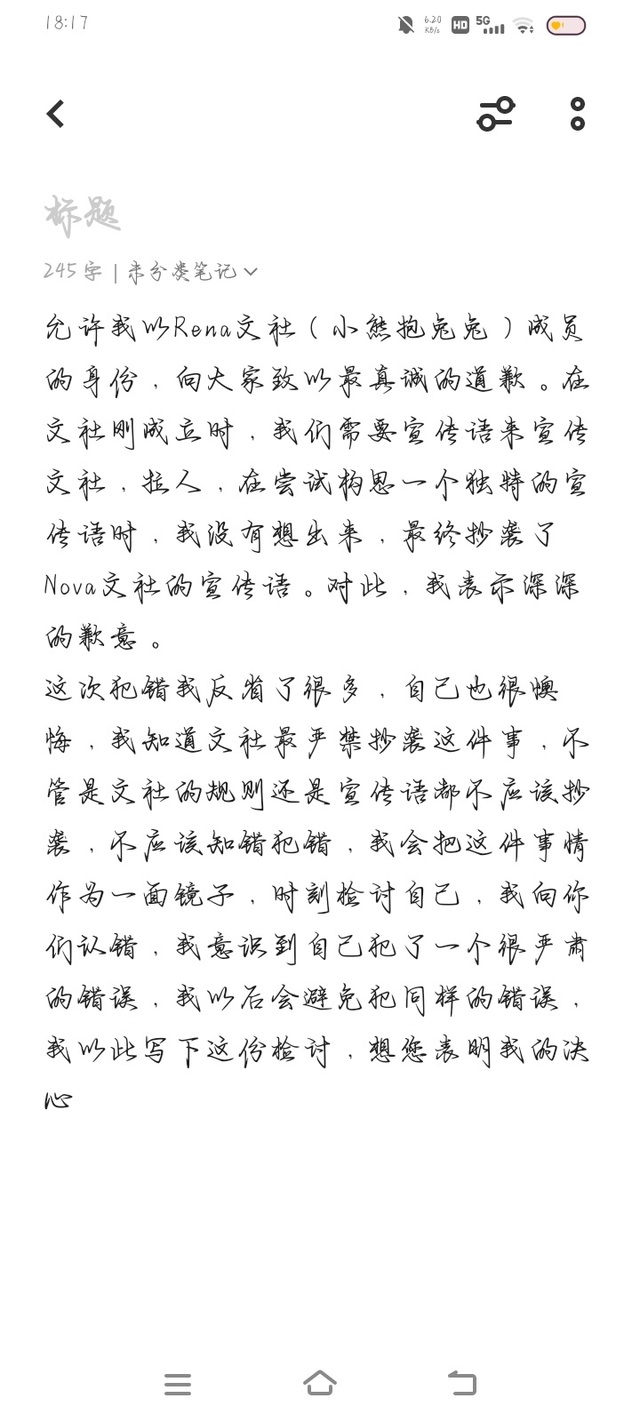 18:17
6.20
KB/s
HD
5G
标题
245字 | 未分类笔记
允许我以Rena文社(小熊抱兔兔)成员
的身份,向大家致以最真诚的道歉。在
文社刚成立时,我们需要宣传语来宣传
文社,拉人,在尝试构思一个独特的宣
传语时,我没有想出来,最终抄袭了
Nova文社的宣传语。对此,我表示深深
的歉意。
这次犯错我反省了很多,自己也很懊
悔,我知道文社最严禁抄袭这件事,不
管是文社的规则还是宣传语都不应该抄
袭,不应该知错犯错,我会把这件事情
作为一面镜子,时刻检讨自己,我向你
们认错,我意识到自己犯了一个很严肃
的错误,我以后会避免犯同样的错误,
我以此写下这份检讨,想您表明我的决
心